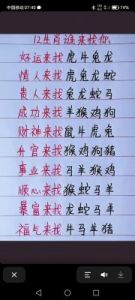 中国移动 07:40
12生肖谁来找你
好运来找虎牛兔龙
情人来找龙兔蛇
贵人来找龙蛇马
成功来找羊猴鸡狗
财神来找鼠牛虎兔
升官来找猴鸡狗猪
事业来找马羊猴鸡
顺心来找猴蛇马羊
暴富来找龙蛇马羊
福气来找牛马羊猪